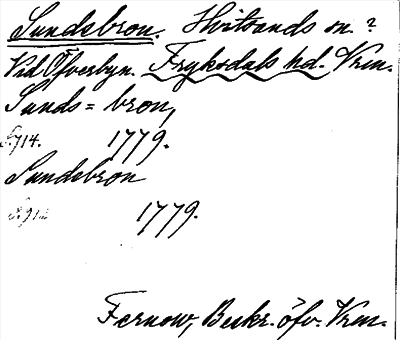 Sundsbron. Hvitsands sn.?
Vid Öfverbyn. Fryksdals hd. Vrm.
Sunds=bron,
S. 714. 1779.
Sundsbron
1779.
Fernow, Beskr. öfv. Vrm.